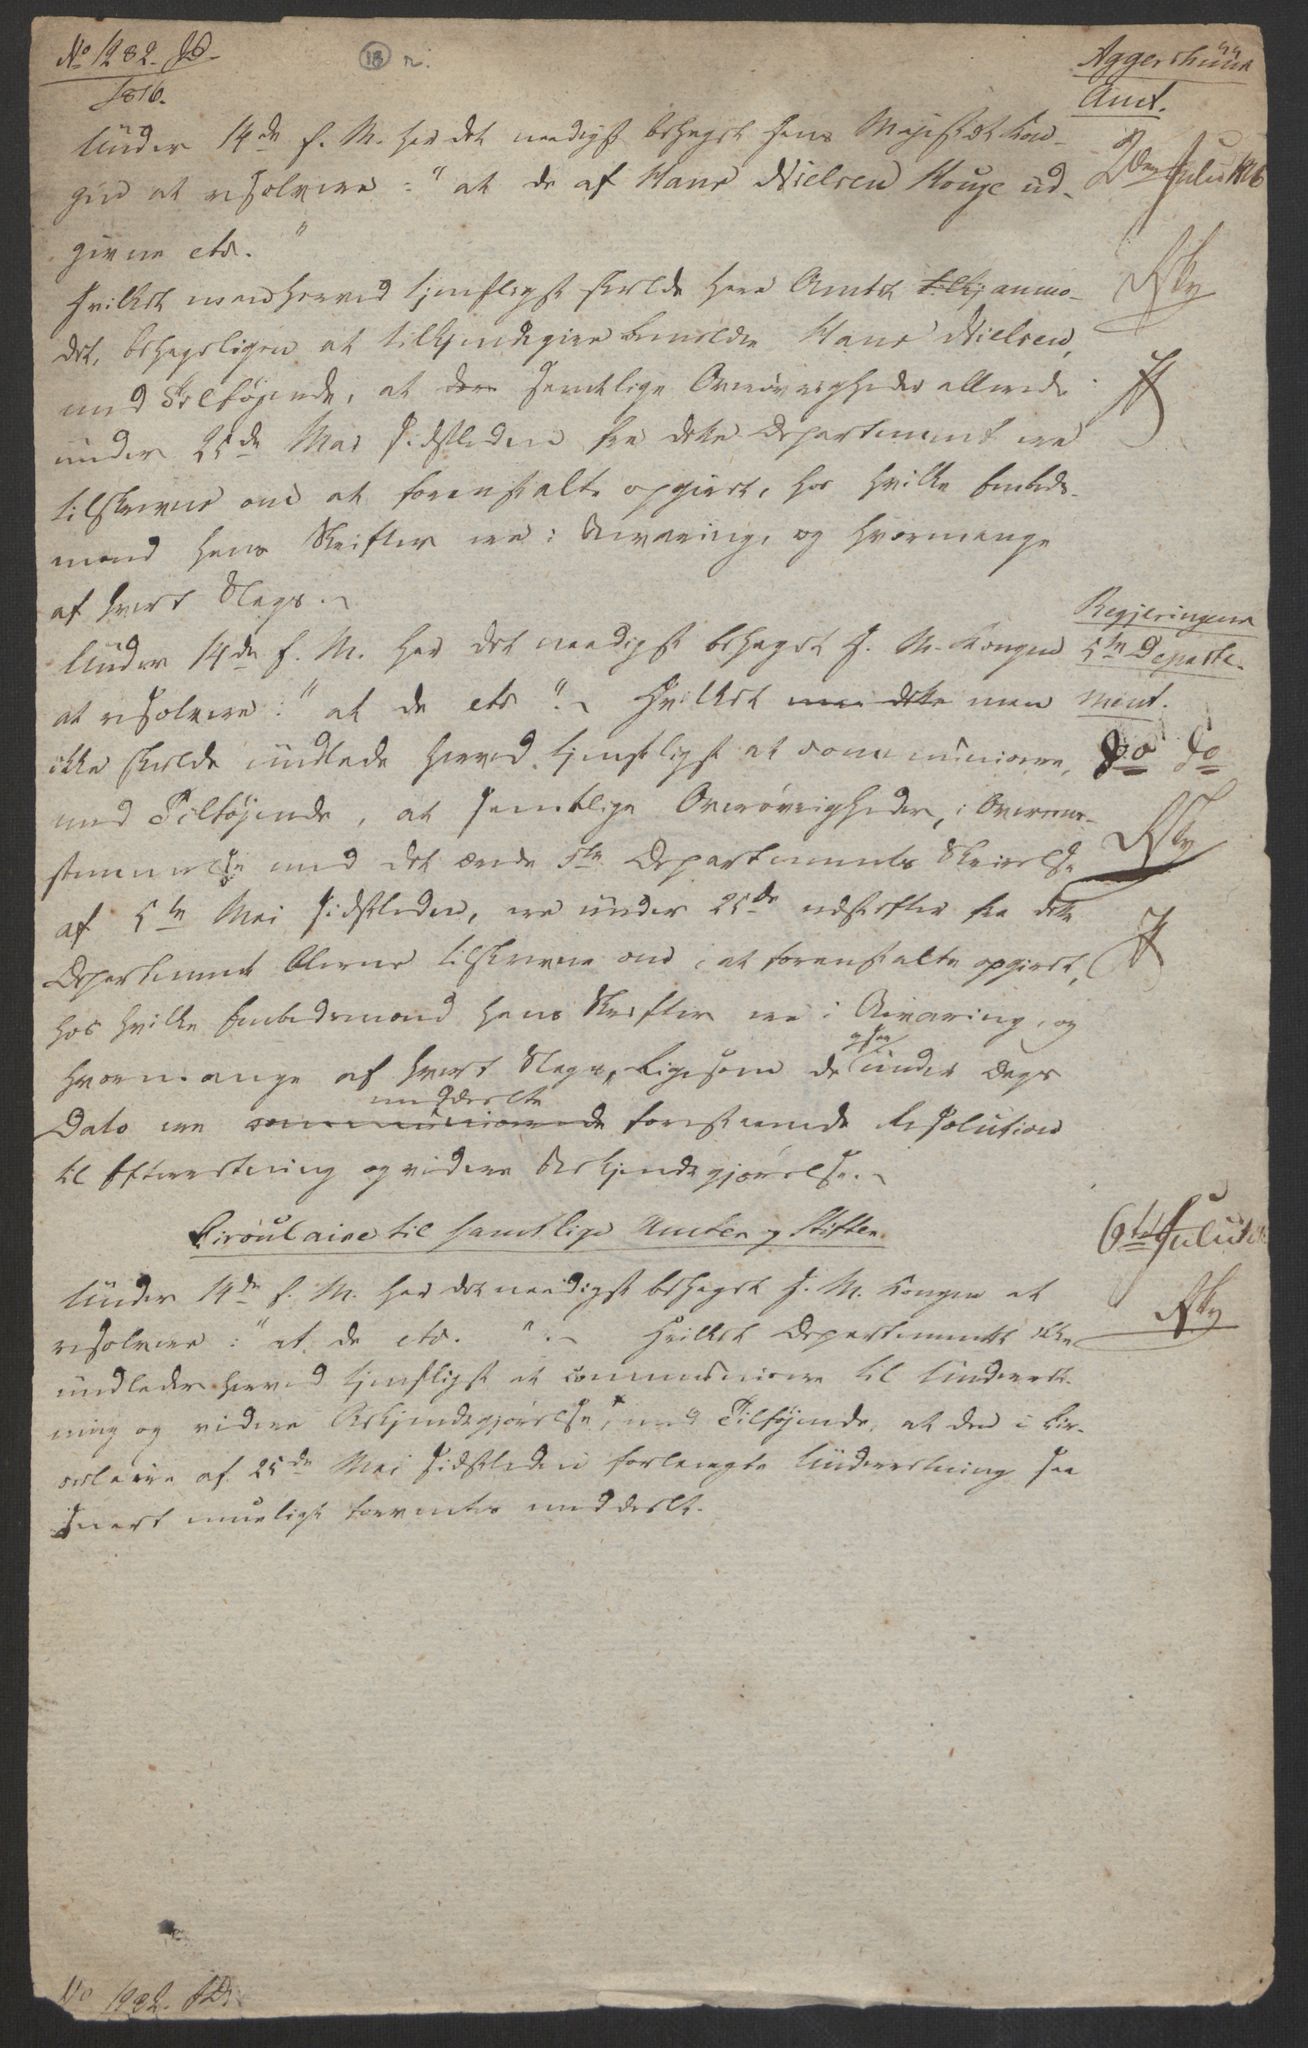 No 1282. JD.
1816.
18 n.
Aggershuus
Amt.
2den Julii 1816
Under 14de f. M. har det naadigst behaget Hans Majestæt Kon-
gen at resolvere: "at de af Hans Nielsen Houge ud-
givne etc."
Hvilket man herved tjenstligst skulde have Amtet tilkj anmo-
det, behageligen at tilkjendegive bemeldte Hans Nielsen,
med Tilføjende, at den samtlige Overøvrigheder allerede
under 25de Mai sidstleden fra dette Departement ere
tilskrevne om at foranstalte opgivet, hos hvilke Embeds-
mænd hans Skrifter ere i Bevaring, og hvormange
af hvert Slags.
Regjeringens
5te Departe-
ment.
do do
Under 14de f. M. har det naadigst behaget H. M. Kongen
at resolvere: "at de etc". Hvilket man
ikke skulde undlade herved tjenstligst at communicere,
med Tilføjende, at samtlige Overøvrigheder, i Overeens-
stemmelse med det ærede 5te Departements Skrivelse
af 5te Mai sidstleden, ere under 25de næstefter fra dette
Departement blevne tilskrevne om, at foranstalte opgivet,
hos hvilke Embedsmænd hans Skrifter ere i Bevaring, og
hvormange af hvert Slags, ligesom de ogsaa under Dags
Dato ere communicerede meddeelte forestaaende Resolution
til Efterretning og videre Bekjendtgjørelse.
Circulaire til samtlige Amter og Stifter.
6te Julii
Under 14de f. M. har det naadigst behaget H. M. Kongen at
resolvere: "at de etc.". Hvilket Departementet ikke
undlader herved tjenstligst at communicere til Underret-
ning og videre Bekjendtgjørelse, med Tilføjende, at den i Cir-
culaire af 25de Mai sidstleden forlangte Underretning saa
snart mueligt forventes meddeelt.
No 1282. JD.